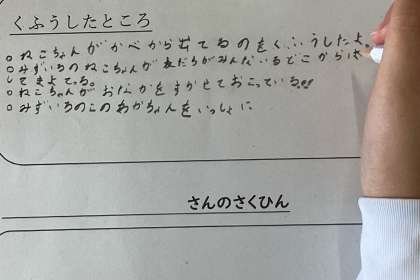 くふうしたところ
○ねこちゃんがかべから出てるのをくふうしたよ。
○みずいろのねこちゃんが友だちがみんないるどこからは
してきよてる。
○ねこちゃんがおなかをすかせておこっている!!
○みずいろのこのあかちゃんをいっしょに
さんのさくひん